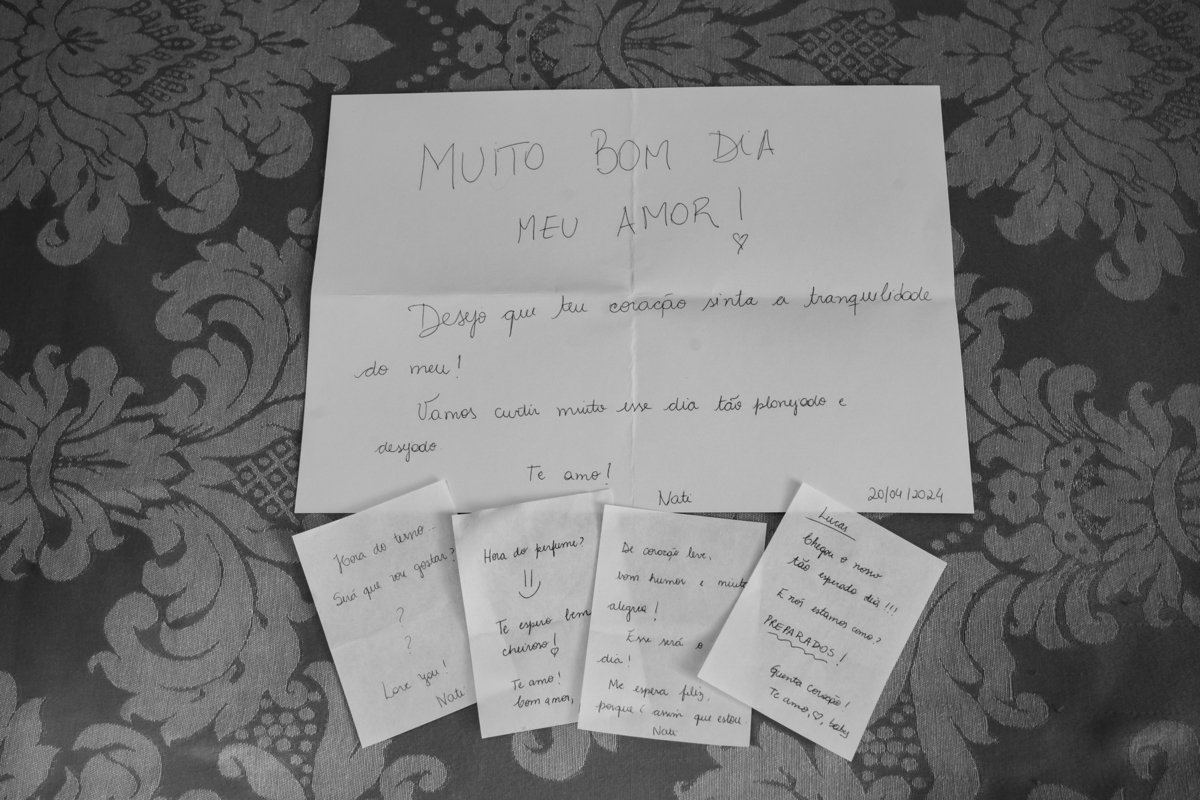 MUITO BOM DIA
MEU AMOR!
Desejo que teu coração sinta a tranquilidade
do meu!
Vamos curtir muito esse dia tão planejado e
desejado
Te amo!
Nati
20/04/2024
Hora do terno...
Será que vou gostar?
?
?
Love you!
Nati
Hora do perfume?
Te espero bem
cheiroso!
Te amo!
bom amor,
De coração leve,
bom humor e muita
alegria!
Esse será o
dia!
Me espera feliz,
porque é assim que estou.
Nati
Lucas
Chegou o nosso
tão esperado dia!!!
E nós estamos como?
PREPARADOS!
Guenta coração!
Te amo, baby